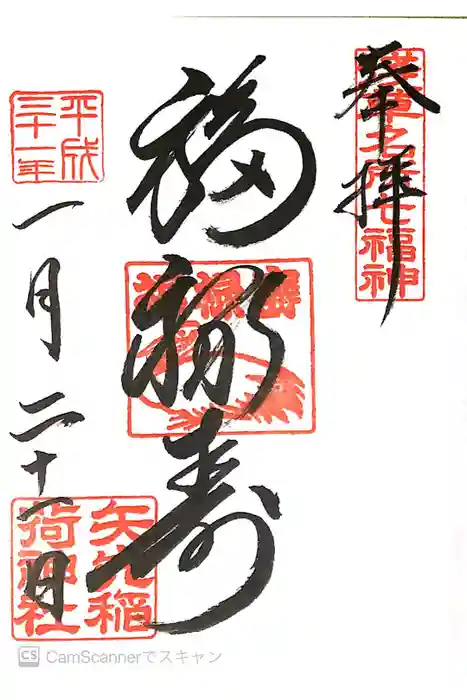 奉拝
浅草名所七福神
福禄寿
福禄寿
平成
三十一年
一月二十一日
矢先稲
荷神社
CS CamScannerでスキャン